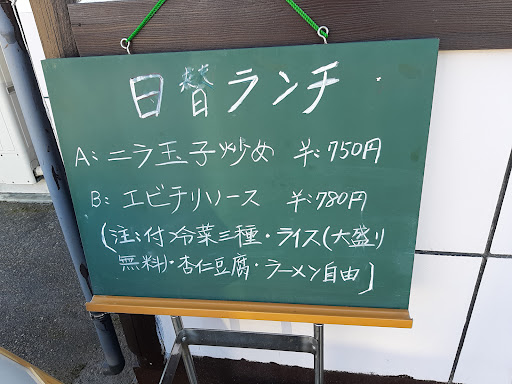 日替ランチ
A:ニラ玉子炒め ¥:750円
B:エビチリソース ¥:780円
(注:付冷菜三種・ライス(大盛り
無料)・杏仁豆腐・ラーメン自由]